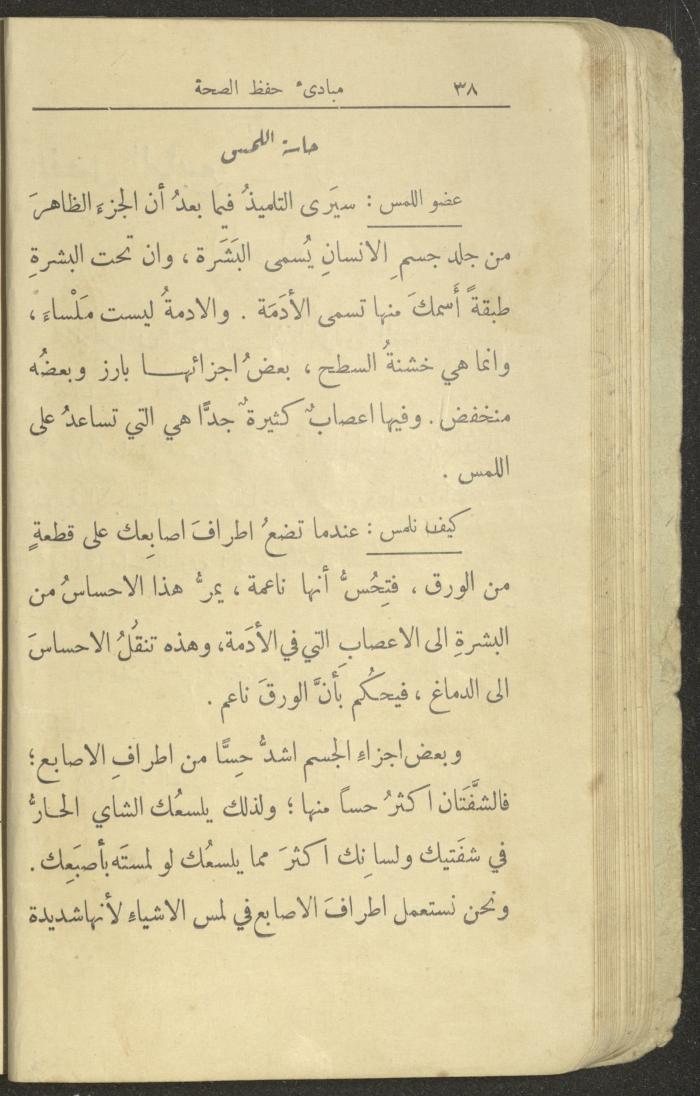 ٣٨ مبادئ حفظ الصحة
حاسة اللمس
عضو اللمس : سيَرى التلميذُ فيما بعدُ أن الجزءَ الظاهرَ
من جلد جسمِ الانسانِ يُسمى البَشَرة ، وان تحت البشرةِ
طبقةً أَسمكَ منها تسمى الأدَمَة . والادمةُ ليست مَلْساءَ ،
وانما هي خشنةُ السطح ، بعضُ اجزائهـا بارز وبعضُه
منخفض . وفيها اعصابٌ كثيرةٌ جدًّا هي التي تساعدُ على
اللمس .
كيف نلمس : عندما تضعُ اطرافَ اصابِعك على قطعةٍ
من الورق ، فتِحُسُّ أنها ناعمة ، يمرُّ هذا الاحساسُ من
البشرةِ الى الاعصابِ التي في الأدَمة، وهذه تنقُلُ الاحساسَ
الى الدماغ ، فيحكُم بأنَّ الورقَ ناعم .
وبعض اجزاءِ الجسم اشدُّ حِسًّا من اطرافِ الاصابع ؛
فالشفَّتَان اكثرُ حساً منها ؛ ولذلك يلسعُك الشاي الحـارُّ
في شفَتيك ولسانِك اكثرَ مما يلسعُك لو لمستَه بأصبَعِك .
ونحن نستعمل اطرافَ الاصابع في لمس الاشياءِ لأنها شديدة